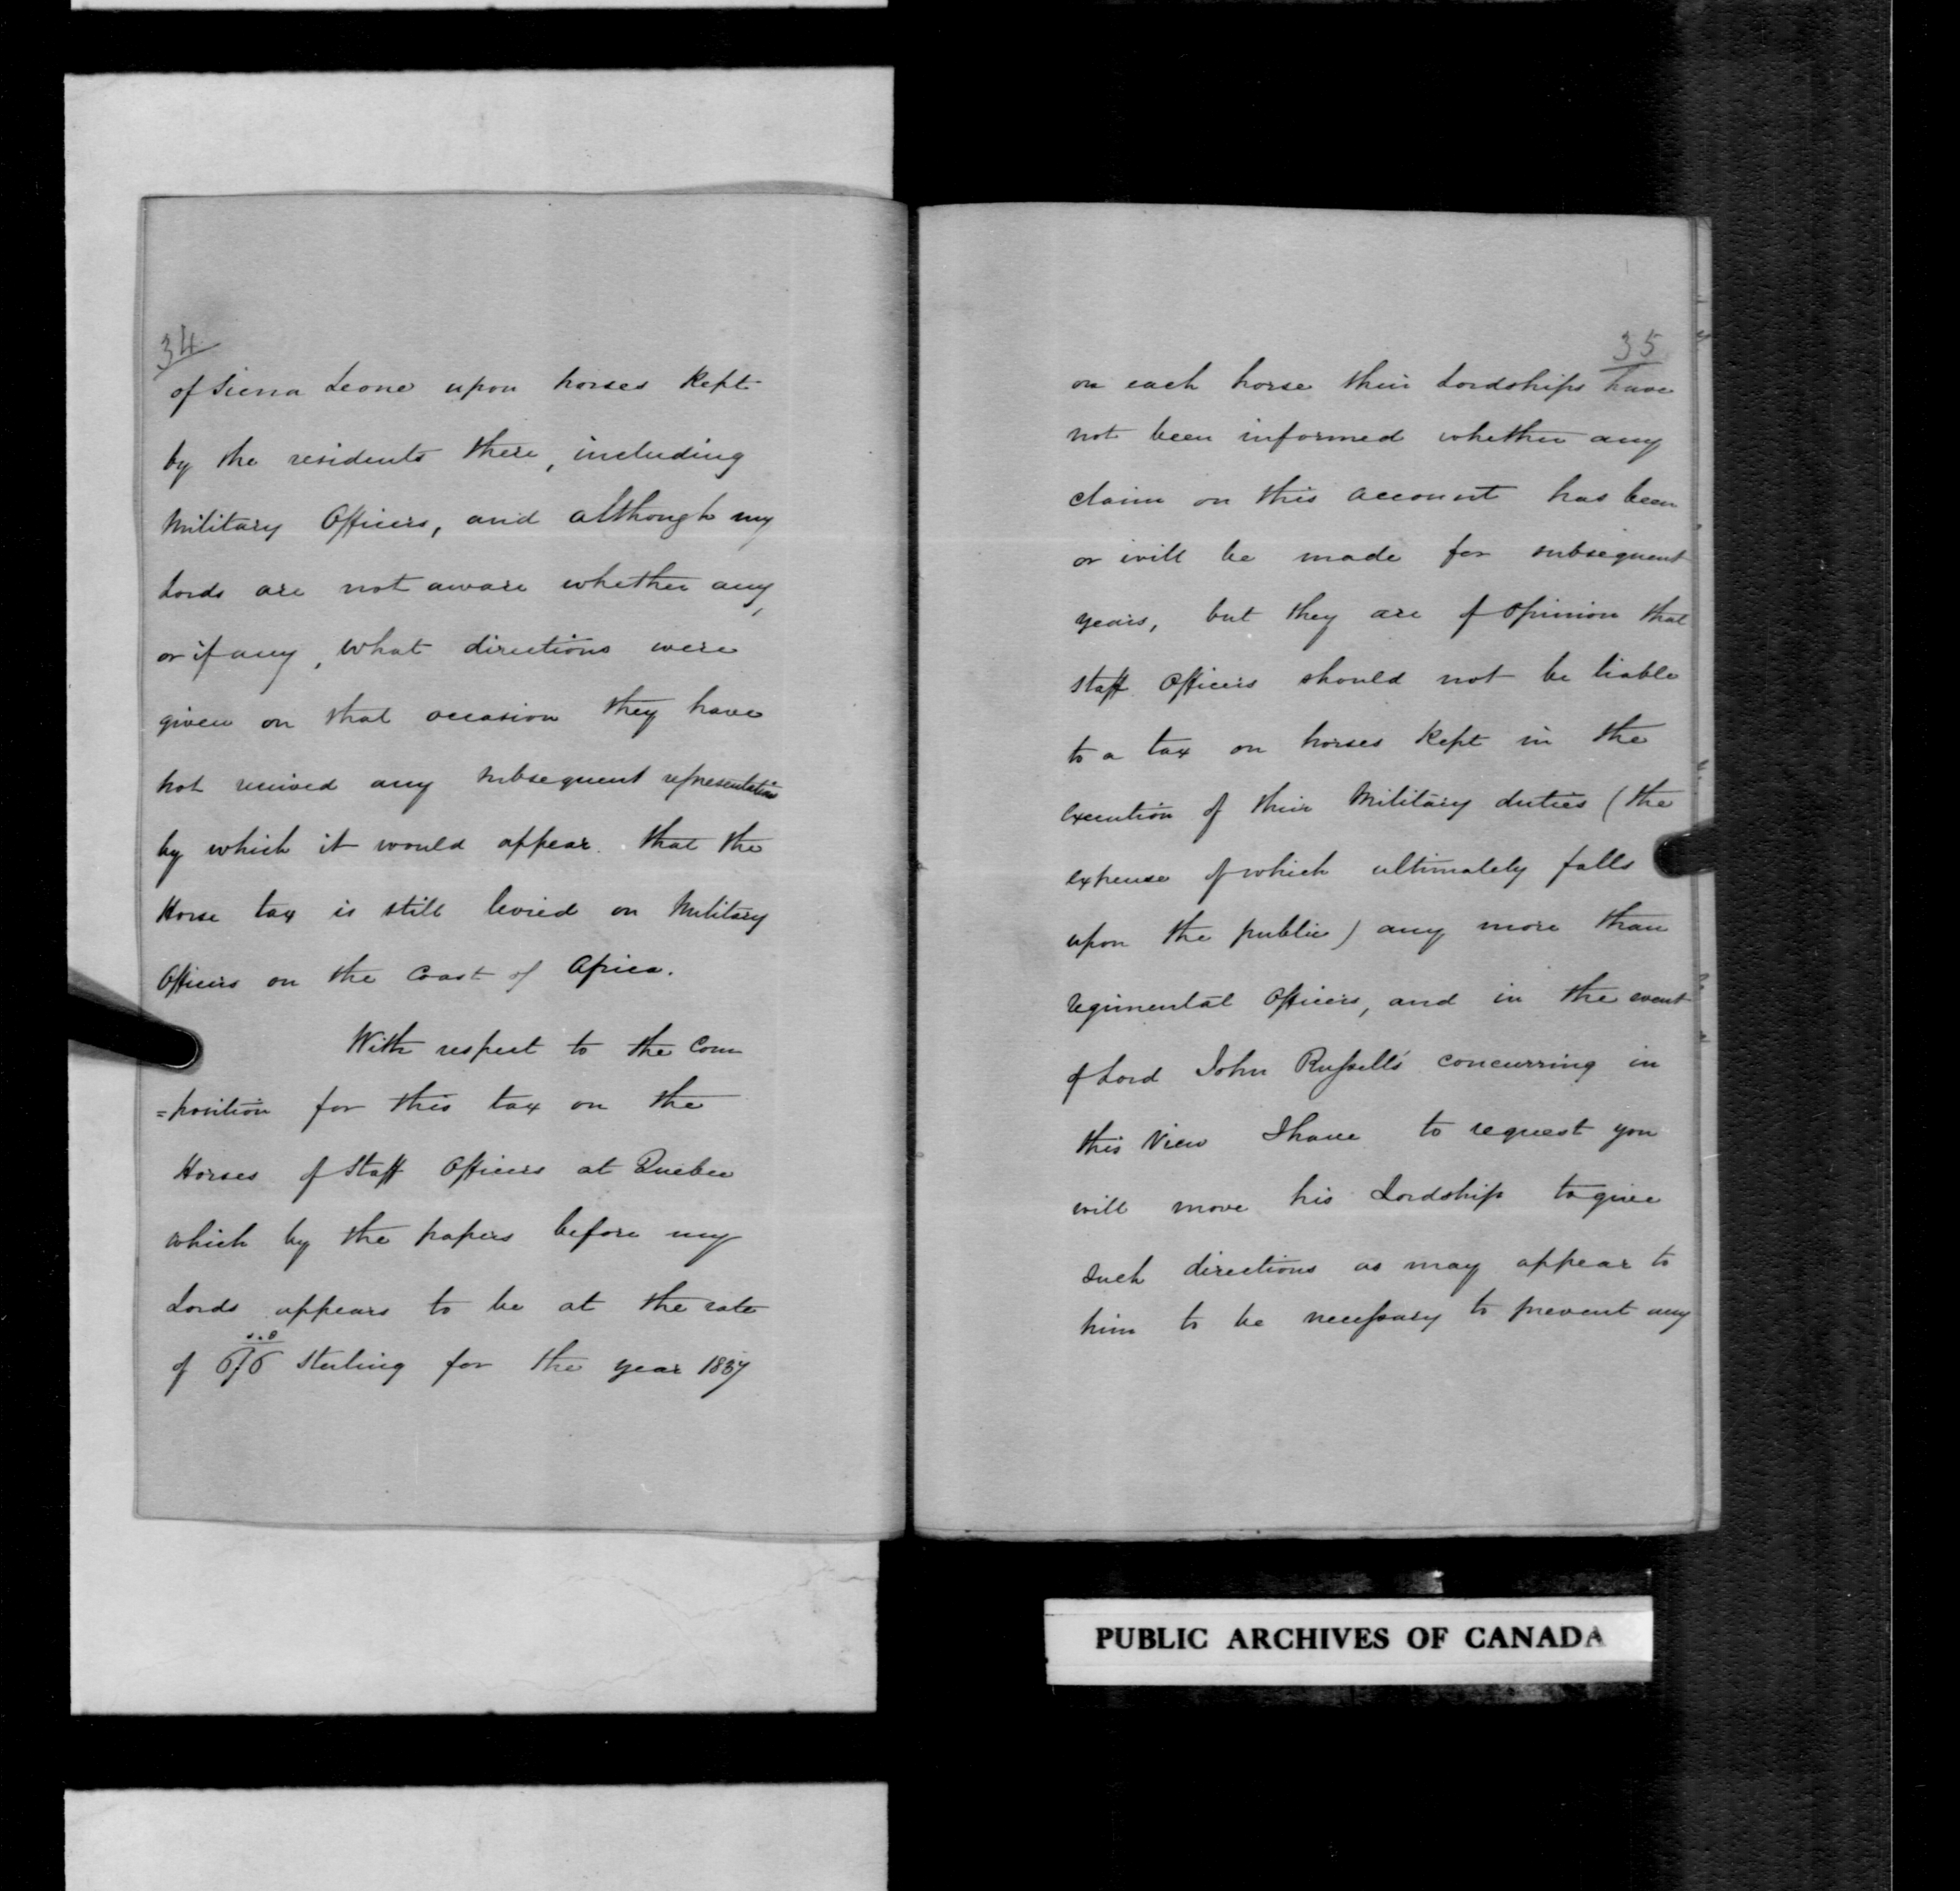 34
of Sierra Leone upon horses kept
by the residents there, including
Military Officers, and although my
Lords are not aware whether any,
or if any, what directions were
given on that occasion they have
not received any subsequent representation
by which it would appear that the
Horse tax is still levied on Military
Officers on the Coast of Africa.
With respect to the Com
=position for this tax on the
Horses of Staff Officers at Quebec
which by the papers before my
Lords appears to be at the rate
of 6/6 Sterling for the year 1837
35
on each horse their Lordships have
not been informed whether any
claim on this account has been
or will be made for subsequent
years, but they are of opinion that
Staff Officers should not be liable
to a tax on horses kept in the
execution of their Military duties (the
expense of which ultimately falls
upon the public) any more than
regimental Officers, and in the event
of Lord John Russell's concurring in
this View I have to request you
will move his Lordship to give
such directions as may appear to
him to be necessary to prevent any
PUBLIC ARCHIVES OF CANADA